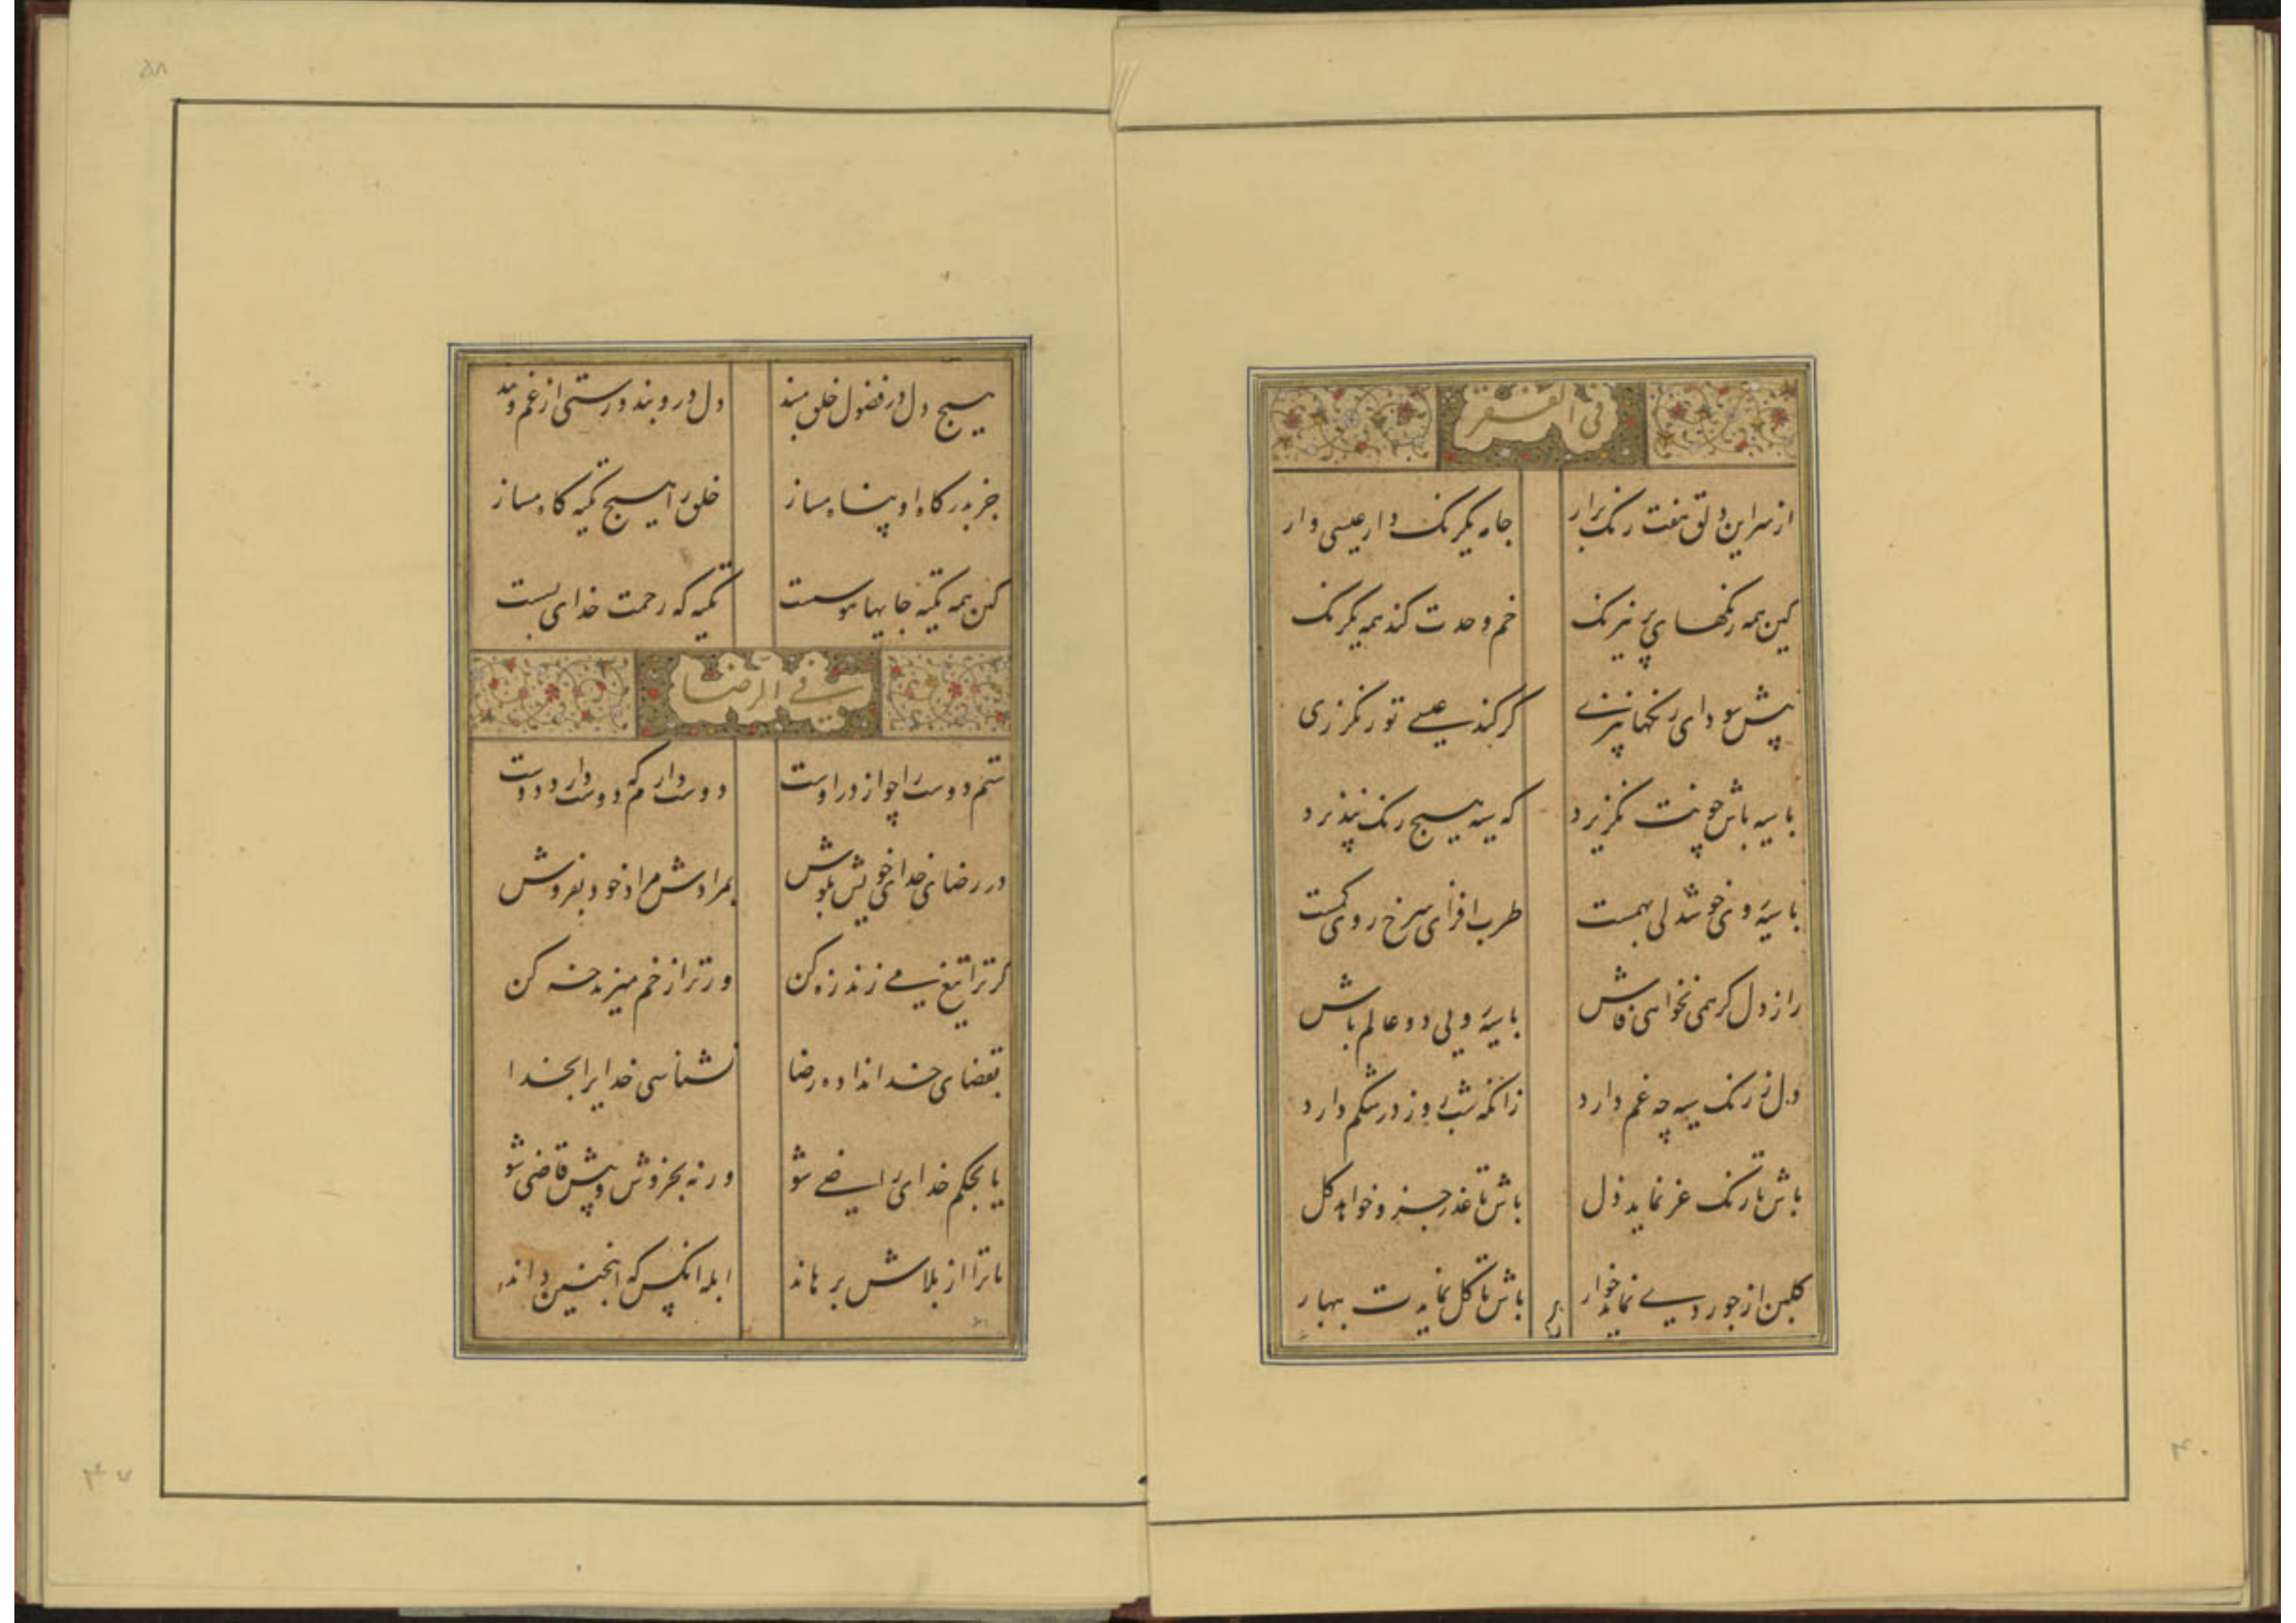 فی الفقر
از سر این دلق هفت رنک برار جامه یکرنک دار عیسی وار
کین همه رنکهای پر نیرنک خم وحدت کند همه یکرنک
پیش سودای رنکها نپزی کر کند عیسی تو رنکرزی
با سیه باش چونت نکزیرد که سیه هیچ رنک نپذیرد
با سیه روی خوشدلی بهمست طرب افزای سرخ روی کمست
راز دل کر همی نخواهی فاش با سیه رویی دو عالم باش
دل ز رنک سیه چه غم دارد زانکه شب روز در شکم دارد
باش تا رنک عز نماید ذل باش تا عذر جزو خواهد کل
کلبن از جور دی نماید خوار باش تا کل نمایدت بهار
هیچ دل در فضول خلق مبند دل درو بند و رستی از غم و بند
جز بدرکاه او پناه مساز خلق را هیچ تکیه کاه مساز
کین همه تکیه جایها هوسست تکیه که رحمت خدای بست
فی الرضا
ستم دوست را چو از در اوست دوست دارم که دوست دارد دوست
در رضای خدای خویش بکوش بمرادش مراد خود بفروش
کر ترا تیغ می زند زه کن ور ترا زخم میزند خه کن
بقضای خدا نداده رضا نشناسی خدایرا بخدا
یا بحکم خدای راضی شو ورنه بخروش و پیش قاضی شو
تا ترا از بلاش برهاند ابله انکس که اینچنین داند
۵۸
۴۰
۴۷